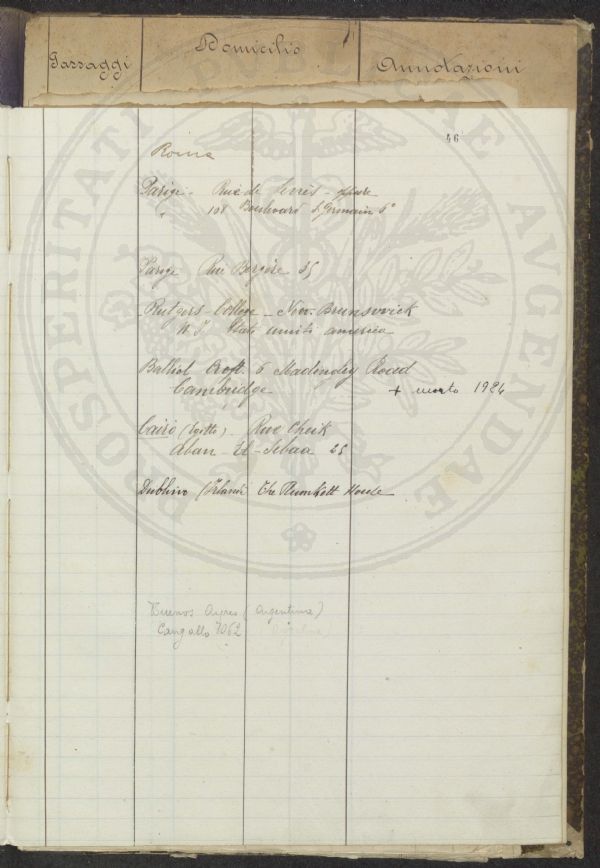 Passaggi
Domicilio
Annotazioni
46
Roma
Parigi - Rue de - oppure
" 108 Boulevard S. Germain 6°
Parigi Rue Bergère 35
Rutgers - College - New-Brunsvvick
N. J. Stati uniti america
Balliol Croft. 6 Madingley Road
Cambridge + morto 1924
Cairo (Egitto) - Rue Cheik
Aban - El - Sebaa 25
Dublino (Irlanda The Plunkett House
Buenos Ayres (Argentina)
Cangallo
PROSPERITATI PUBLICAE AUGENDAE